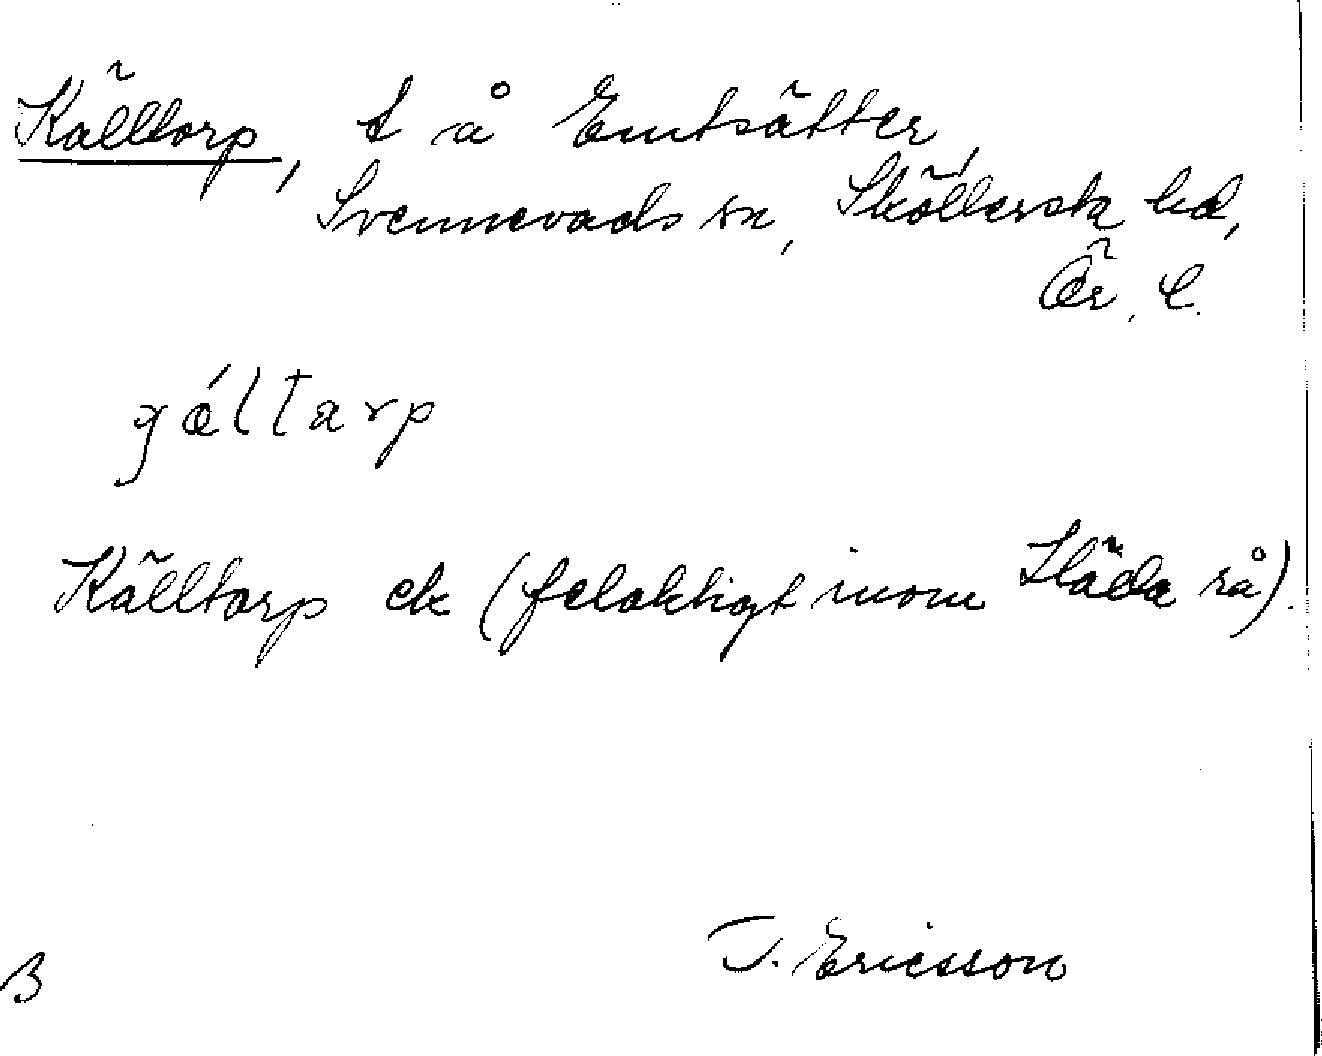 Källtorp, t å Emtsätter,
Svennevads sn, Sköllersta hd,
Ör. l.
Källtorp ek (felaktigt inom Släda rå).
J. Ericsson
B